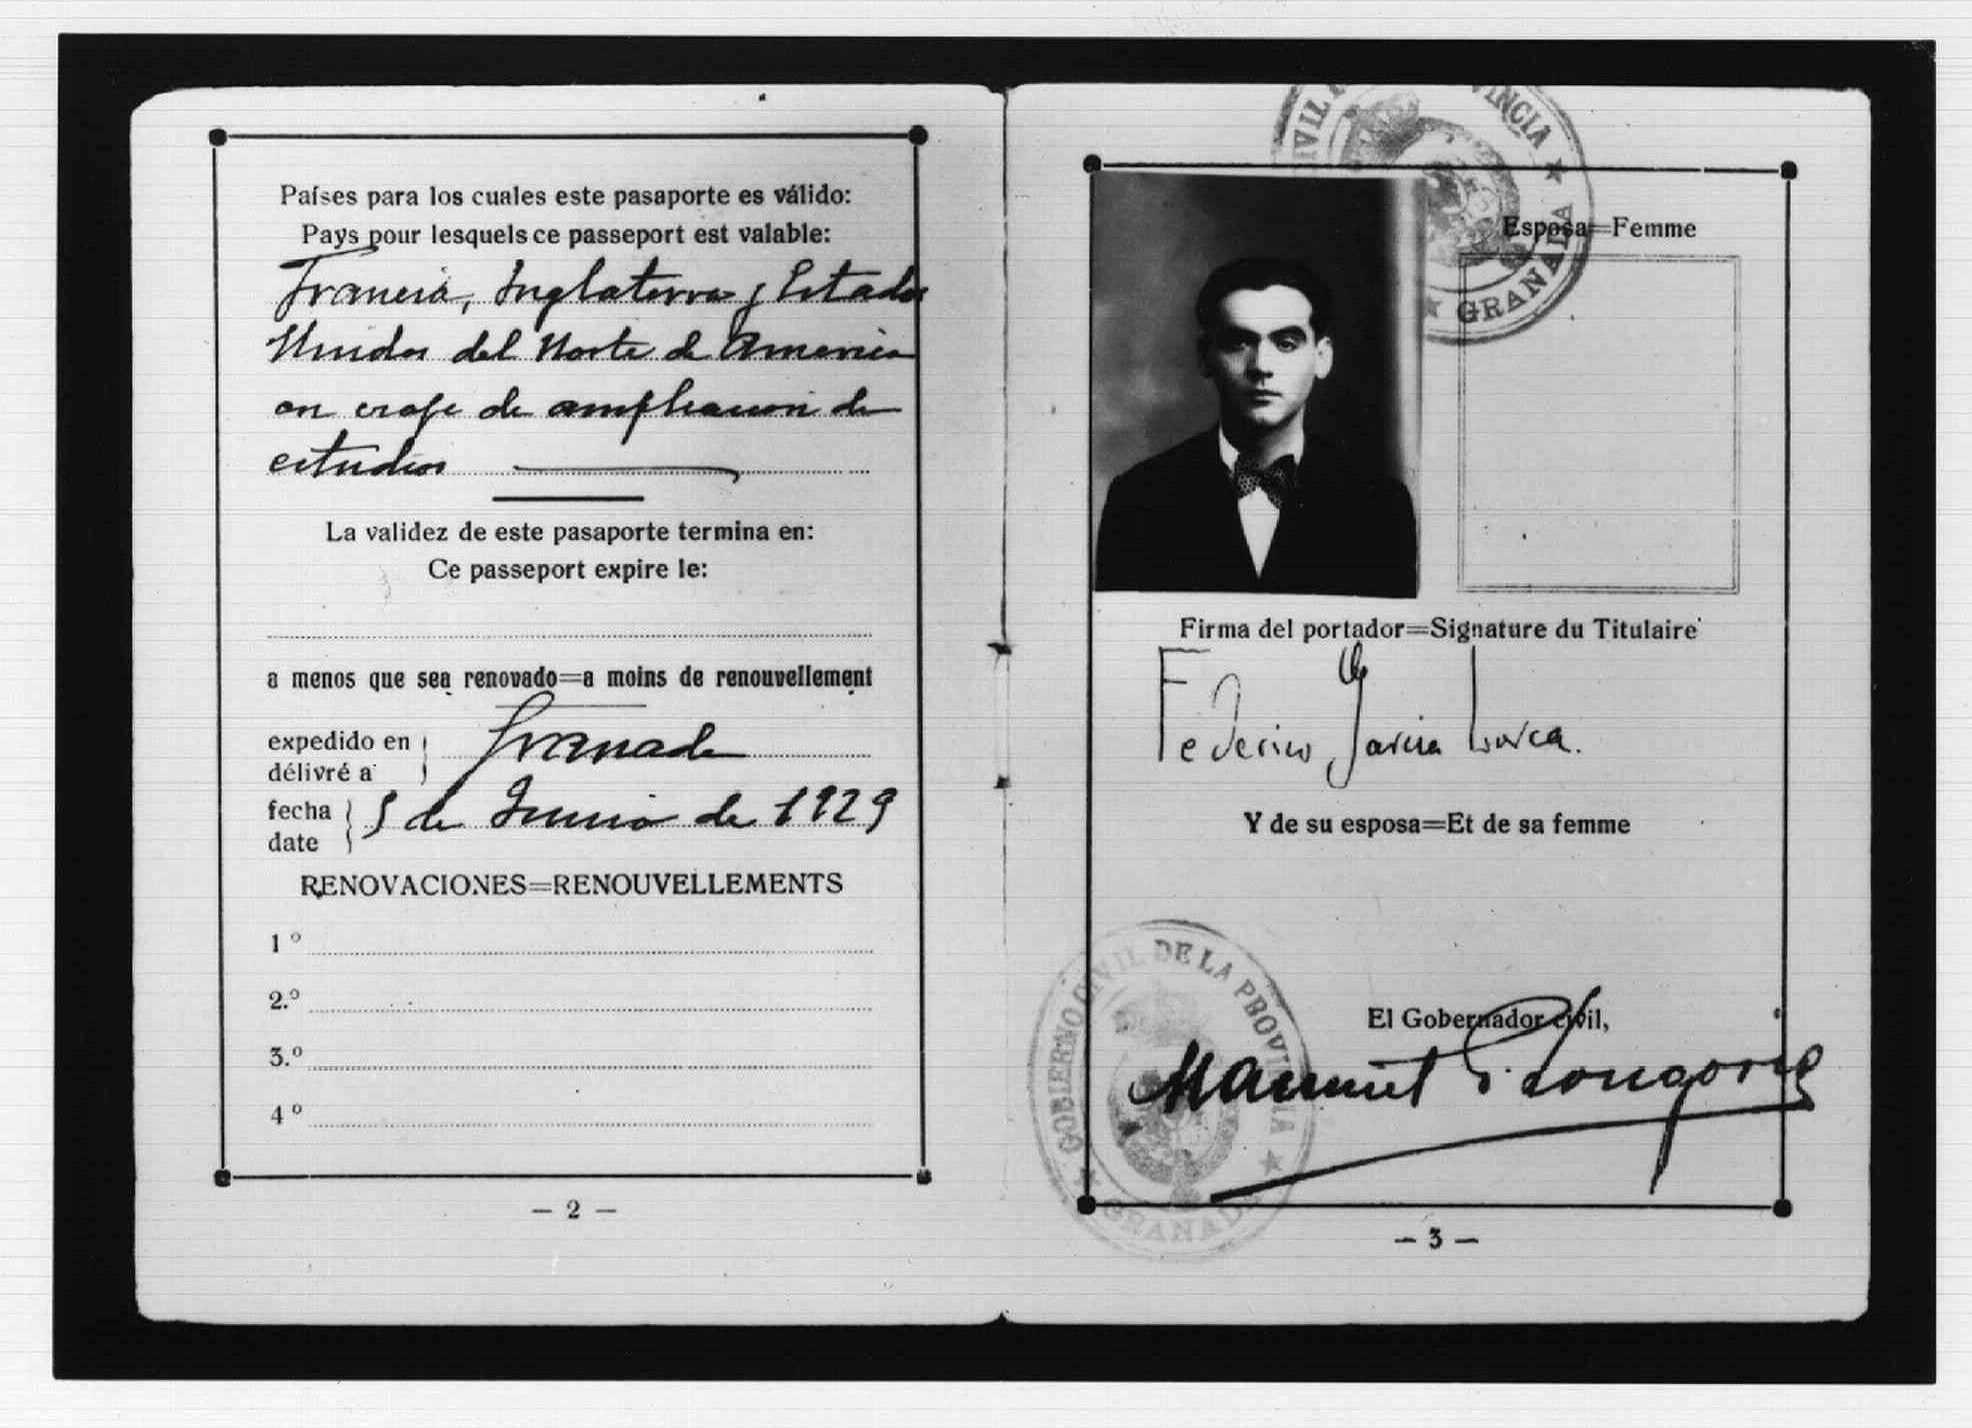 Países para los cuales este pasaporte es válido:
Pays pour lesquels ce passeport est valable:
Francia, Inglaterra y Estados
Unidos del Norte de America
en viaje de ampliacion de
estudios
La validez de este pasaporte termina en:
Ce passeport expire le:
a menos que sea renovado=a moins de renouvellement
expedido en
délivré a
Granada
fecha
date
5 de Junio de 1929
RENOVACIONES=RENOUVELLEMENTS
1º
2.º
3.º
4º
— 2 —
CIVIL VINCIA ★ GRANADA ★
Esposa=Femme
Firma del portador=Signature du Titulaire
Federico García Lorca.
Y de su esposa=Et de sa femme
El Gobernador civil,
Manuel Longoria
★ GOBIERNO CIVIL DE LA PROVINCIA ★ GRANADA
— 3 —